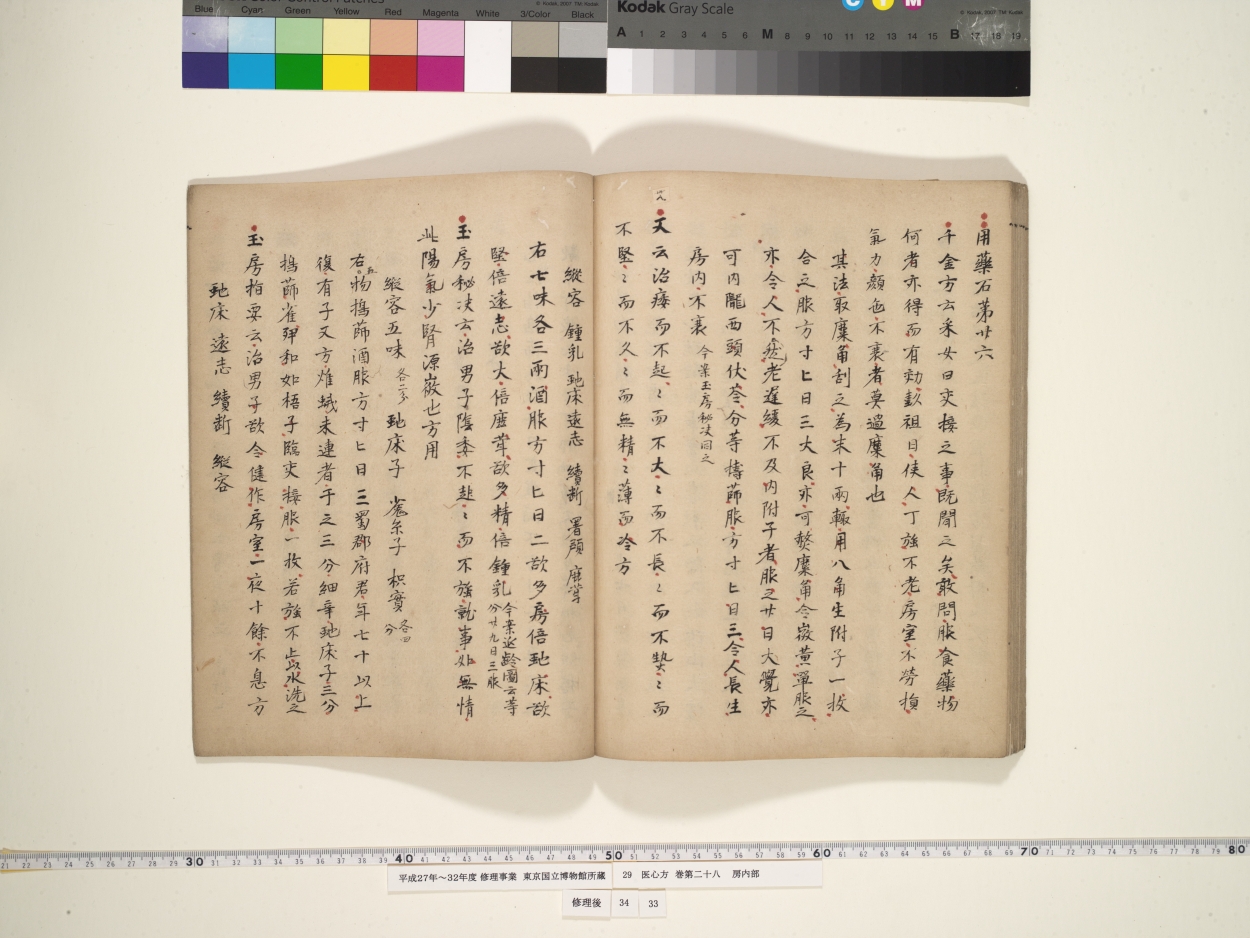 Blue Cyan Green Yellow Red Magenta White 3/Color Black
© Kodak, 2007 TM: Kodak
Kodak Gray Scale
C Y M
© Kodak, 2007 TM: Kodak
A 1 2 3 4 5 6 M 7 8 9 10 11 12 13 14 15 B 17 18 19
用藥石第廿六
千金方云采女曰交接之事既聞之矣敢問服食藥物
何者亦得而有効彭祖曰使人丁強不老房室不勞損
氣力顔色不衰者莫過麋角也
其法取麋角刮之為末十兩輙用八角生附子一枚
合之服方寸匕日三大良亦可熬麋角令微黄單服之
亦令人不老遲緩不及内附子者服之廿日大覺亦
可内隴西頭伏苓分等擣篩服方寸匕日三令人長生
房内不衰 今案玉房秘决同之
又云治痿而不起〻而不大〻而不長〻而不熱〻而
不堅〻而不久〻而無精〻薄而冷方
縱容 鍾乳 虵床 遠志 續断 署預 鹿茸
右七味各三兩酒服方寸匕日二欲多房倍虵床欲
堅倍遠志欲大倍鹿茸欲多精倍鍾乳 今案延齡圖云等分廿九日三服
玉房秘决云治男子陰委不起〻而不強就事如無情
此陽氣少腎源微也方用
縱容五味 各二分 虵床子 菟糸子 枳實 各四分
右五物擣篩酒服方寸匕日三蜀郡府君年七十以上
復有子又方雄蛾未連者干之三分細辛虵床子三分
擣篩雀卵和如梧子臨交接服一枚若強不止以水洗之
玉房指要云治男子欲令健作房室一夜十餘不息方
虵床 遠志 續断 縱容
30 40 50 60 70 80
平成27年～32年度 修理事業 東京国立博物館所蔵
29 医心方 巻第二十八 房内部
修理後 34 33